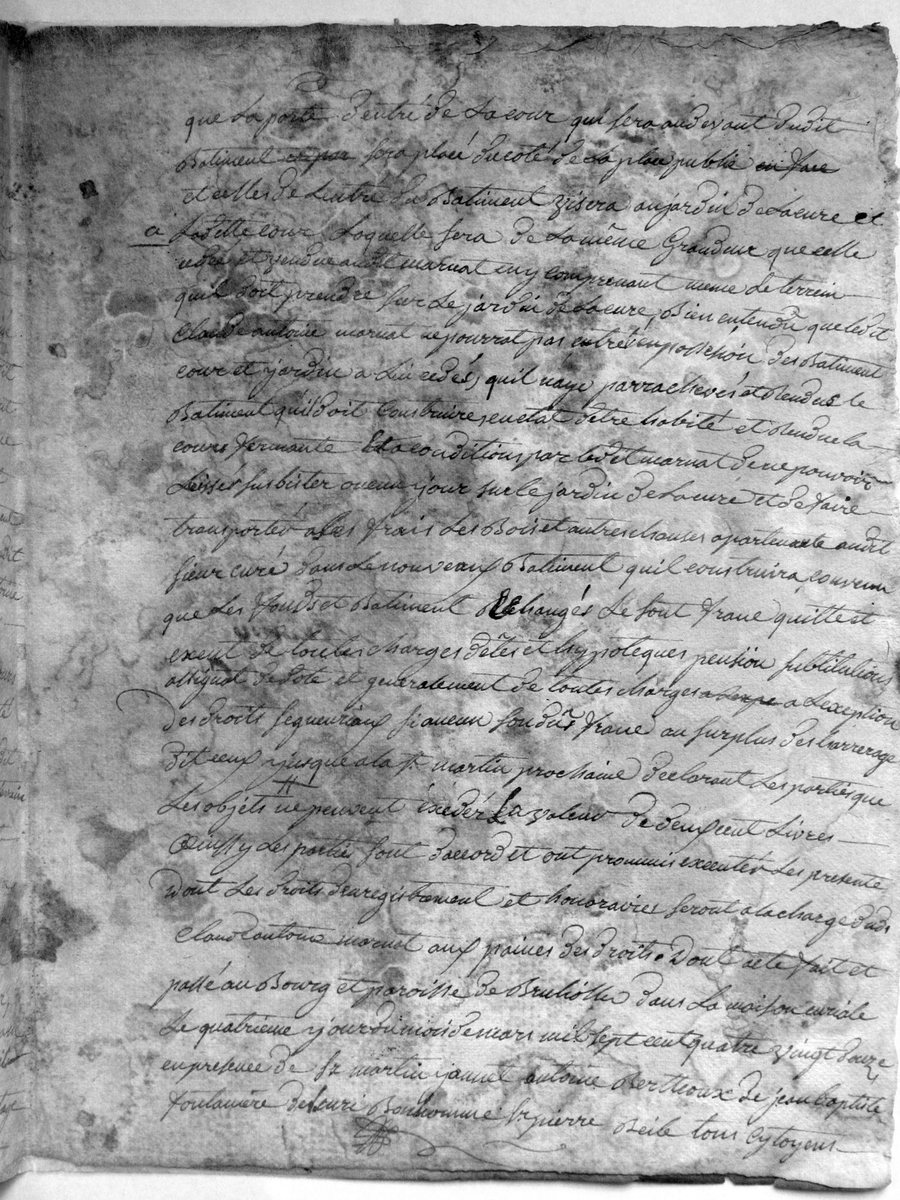 que La porte d'entré de La cour qui sera audevant dudit
Batiment sera placé ducoté de La place publie en face
et celles de L'entré du Batiment visera aujardin de Lacure et
a Ladette cour Laquelle sera de La même Grandeur que celle
cedée et vendue audit marnat en y comprenant meme Le terrein
quil doit prendre sur Le jardin de Lacure, Bien entendu que ledit
Claude antoine marnat ne pourrat pas entrer en possession des Batiment
cour et jardin a Lui cedés, quil n'aye parrachevés et Rendus le
Batiment quil doit Construire, en etat d'etre habité et Rendue la
cour fermante Et a condition par ledit marnat de ne pouvoir
Laisser subsister aucun jour sur le jardin de Lacure et de faire
transporter a ses frais Les Bois et autres chauses apartenante audit
sieur curé dans Le nouveaux Batiment quil construira, convenu
que Les fonds et Batiment Echangés Le sont franc quitte et
exent de toutes charges dêtes et hypoteques pension substitutions
assignat de dote et generalement de toutes charges a L'exception
des droits segneuriaux si aucun son dûs franc au surplus des harrerage
Dit ceux jusque a la St martin prochaine declarant Les parties que
Les objets ne peuvent exeder La valeur de deux cent Livres
Ainssy Les parties sont daccord et ont prommis executer Les presente
Dont Les droits d'enregistrement et honoraires seront a la charge dudi
Claud antoine marnat aux paines des droits. Dont acte fait et
passé au Bourg et paroisse de Brulliolles dans La maison curiale
Le quatrième jour du mois de mars mil sept cent quatre vingt douze
en presence de Sr martin jannet antoine Bertheoux de jean baptiste
de henri Bonhomme Sr pierre tous Cytoyens